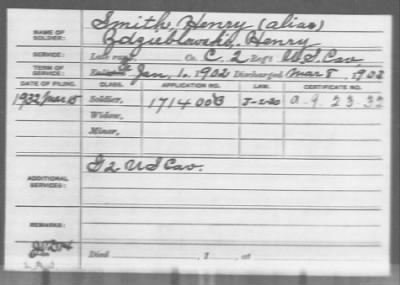 NAME OF SOLDIER: Smith, Henry (alias)
Zdzieblowski, Henry
SERVICE: Late rank, Co. C. 2 Reg't U.S. Cav.
TERM OF SERVICE: Enlisted Jan. 1, 1902 Discharged Mar 8, 1902
DATE OF FILING. CLASS. APPLICATION NO. LAW. CERTIFICATE NO.
1932 Mar 15 Soldier, 1714003 J-2-20 a-9-23-32
Widow,
Minor,
ADDITIONAL SERVICES: G 2 U S Cav.
REMARKS:
Died , 1 , at